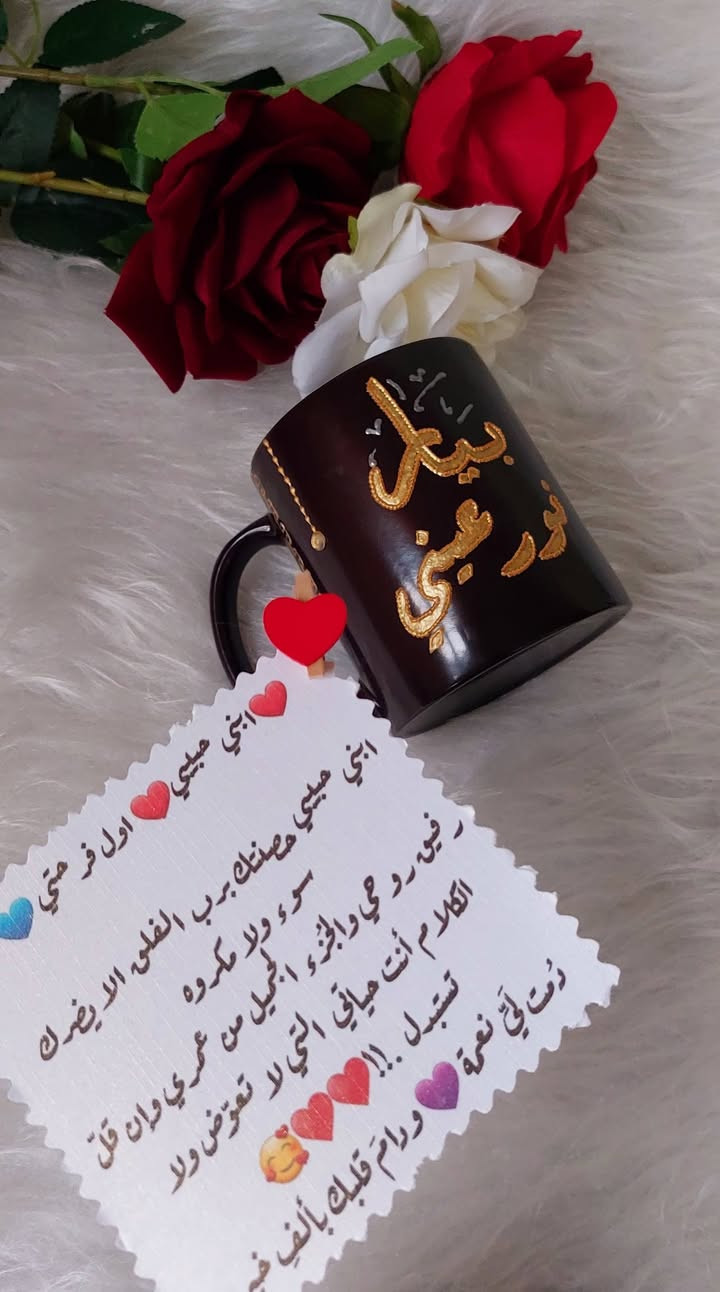 نور عيني
❤️ابني حبيبي❤️ اول فرحتي💙
ابني حبيبي حصنتك برب الفلق الا يضرك
سوء ولا مكروه
رفيق روحي والجُزء الجميل من عمري وإن قلّ
الكلام أنت حياتي التي لا تعوّض ولا
تستبدل..!!❤️❤️🥰
دُمت لَيّ نعمة💜ودامَ قلبك بألفِ